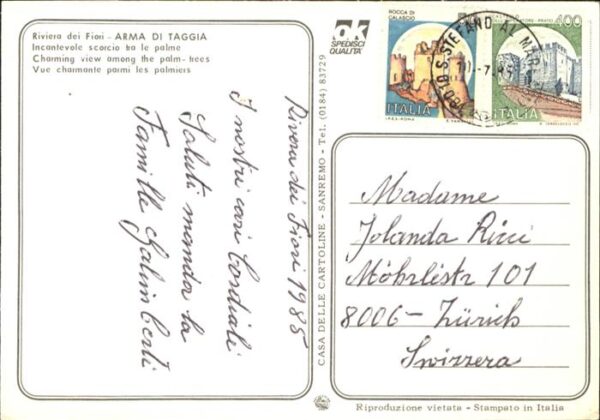 Riviera dei Fiori - ARMA DI TAGGIA
Incantevole scorcio tra le palme
Charming view among the palm-trees
Vue charmante parmi les palmiers
OK
SPEDISCI
QUALITA'
ROCCA DI
CALASCIO
ITALIA
400
ITALIA
18010 S. STEFANO AL MAR
10.-7.
Riviera dei Fiori 1985
I nostri cari Cordiali
Saluti manda la
Familie Galimberti
CASA DELLE CARTOLINE - SANREMO - Tel. (0184) 83729
Madame
Jolanda Ricci
Möhrlistr 101
8006 - Zürich
Svizzera
Riproduzione vietata - Stampato in Italia